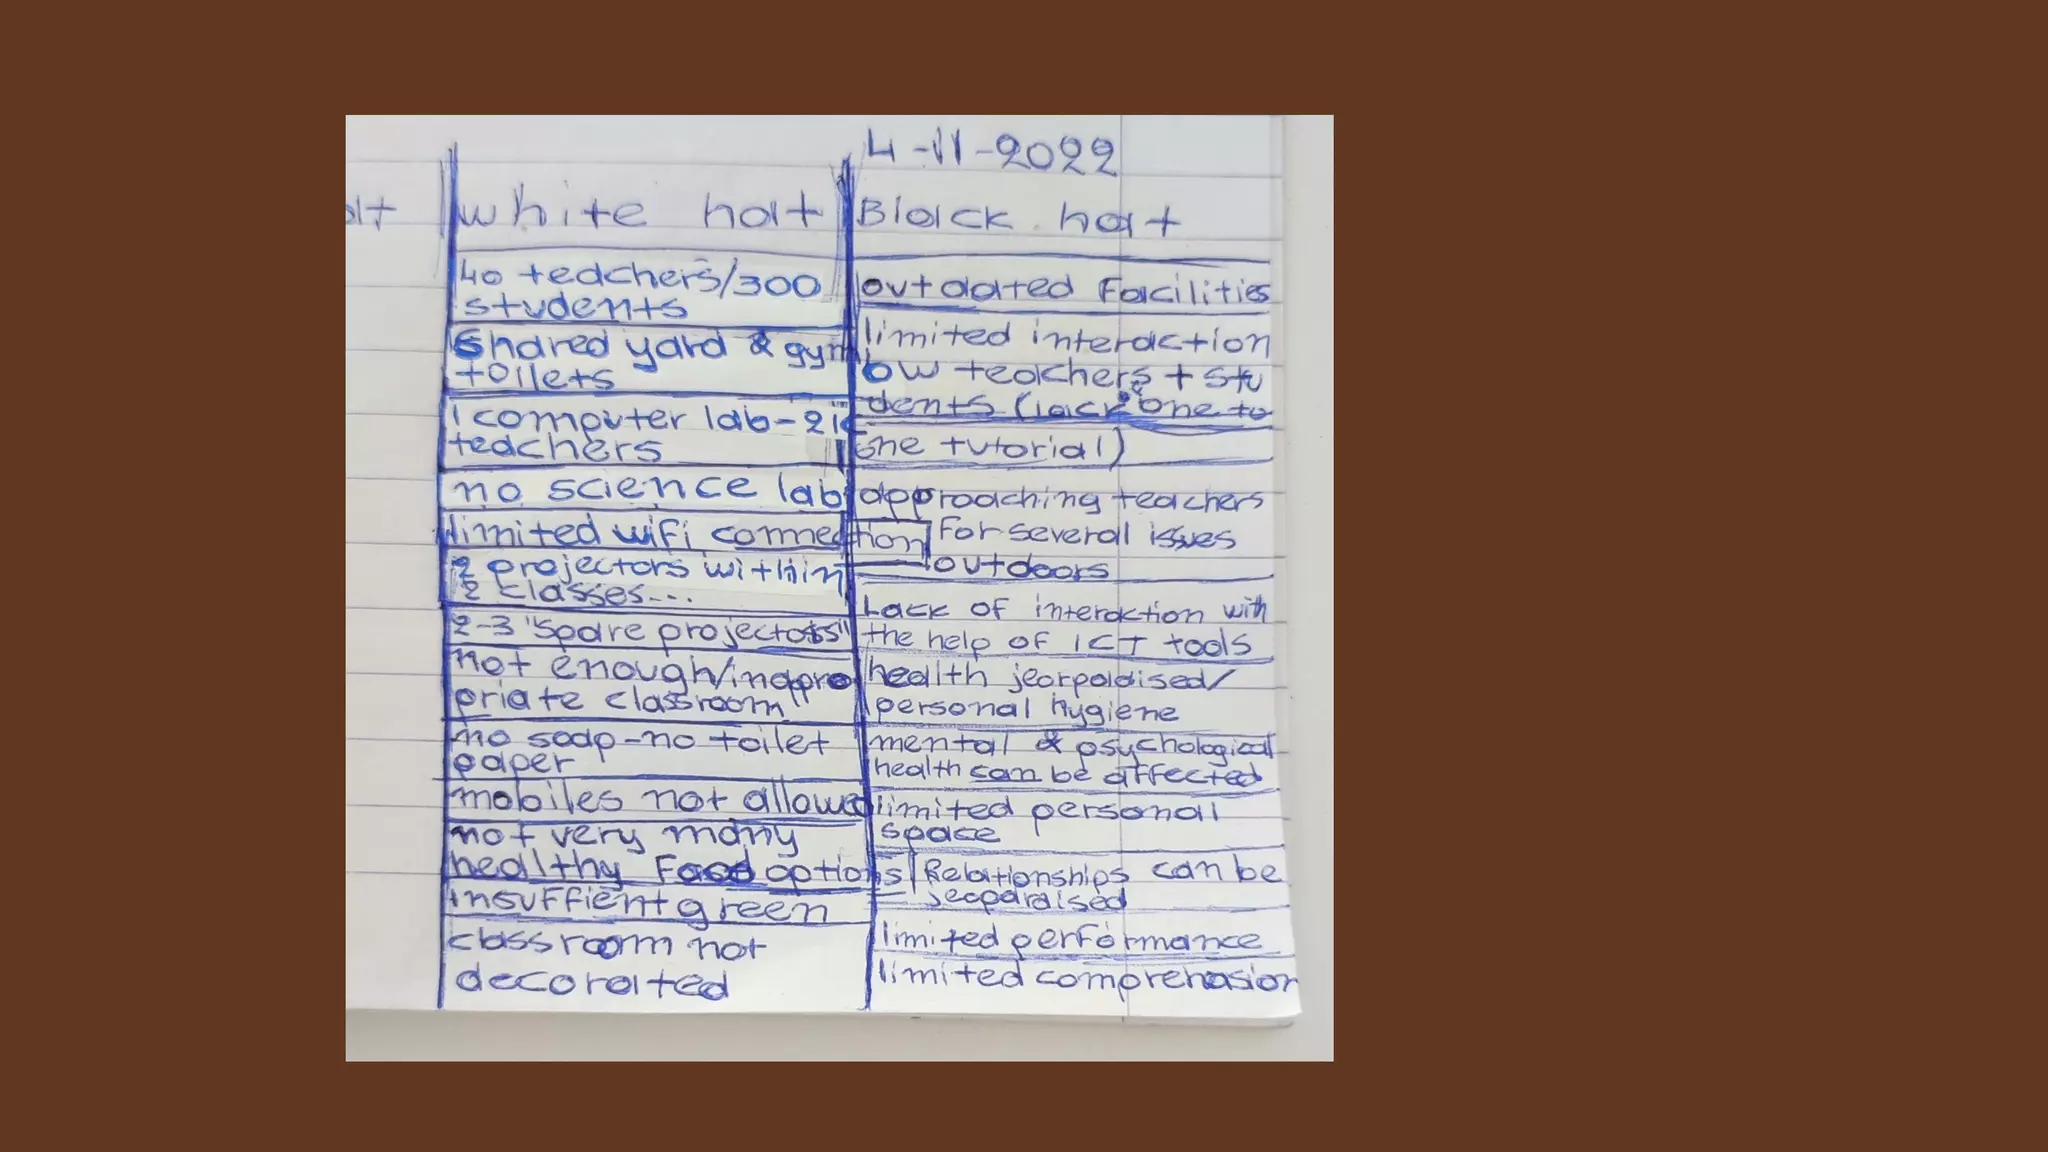 4-11-2022
at
white hat
40 teachers/300
students
Shared yard & gym
toilets
1 computer lab-2 ic
teachers
no science lab
limited wifi connection
2 projectors within
2 classes...
2-3 "spare projectors"
not enough/inappro
priate classroom"
no soap-no toilet
paper
mobiles not allowed
not very many
healthy Food options
insufficient green
classroom not
decorated
Black hat
outdated Facilities
limited interaction
bw teachers + stu
dents (lack one to
one tutorial)
approaching teachers
for several issues
outdoors
Lack of interaction with
the help of ICT tools
health jeorpadised/
personal hygiene
mental & psychological
health can be affected
limited personal
space
Relationships can be
jeopardised
limited performance
limited comprehasion